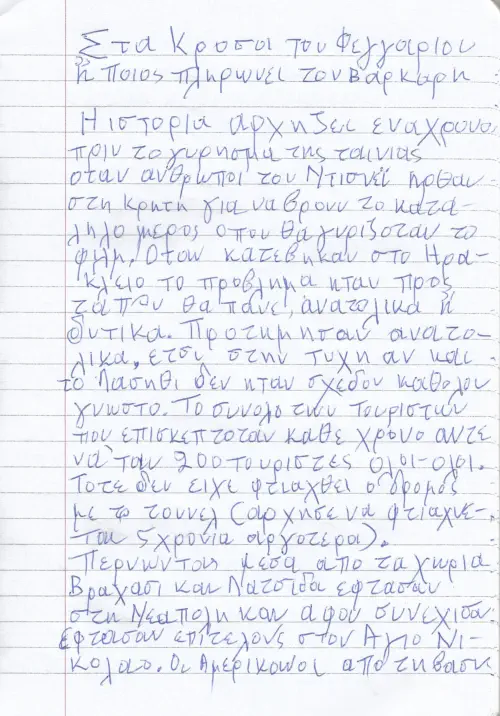 Στα Κροσοι του Φεγγαριου
ἤ ποιος πληρωνει τον Βαρκαρη
Η ιστορια αρχηζει ενα χρονο
πριν το γυρησμα της ταινιας
οταν ανθρωποι του Ντισνεϊ ηρθαν
στη Κρητη για να βρουν το κατα-
ληλο μερος οπου θα γυριζοταν το
φιλμ. Οταν κατεβηκαν στο Ηρα-
κλειο το προβλημα ηταν προς
τα που θα πανε, ανατολικα ἤ
δυτικα. Προτημησαν ανατο-
λικα, ετσι στην τυχη αν και
το Λασηθι δεν ηταν σχεδον καθολου
γνωστο. Το συνολο των τουριστων
που επισκεπτοταν καθε χρονο αντε
να ταν 200 τουριστες ολοι-ολοι.
Τοτε δεν ειχε φτιαχθει ο δρομος
με το τουνελ (αρχησε να φτιαχνε-
ται 5 χρονια αργοτερα).
Περνωντας μεσα απο τα χωρια
Βραχασι και Λατσιδα εφτασαν
στη Νεαπολη και αφου συνεχισαν
εφτασαν επιτελους στον Αγιο Νι-
κολαο. Οι Αμερικανοι απο τη βαση